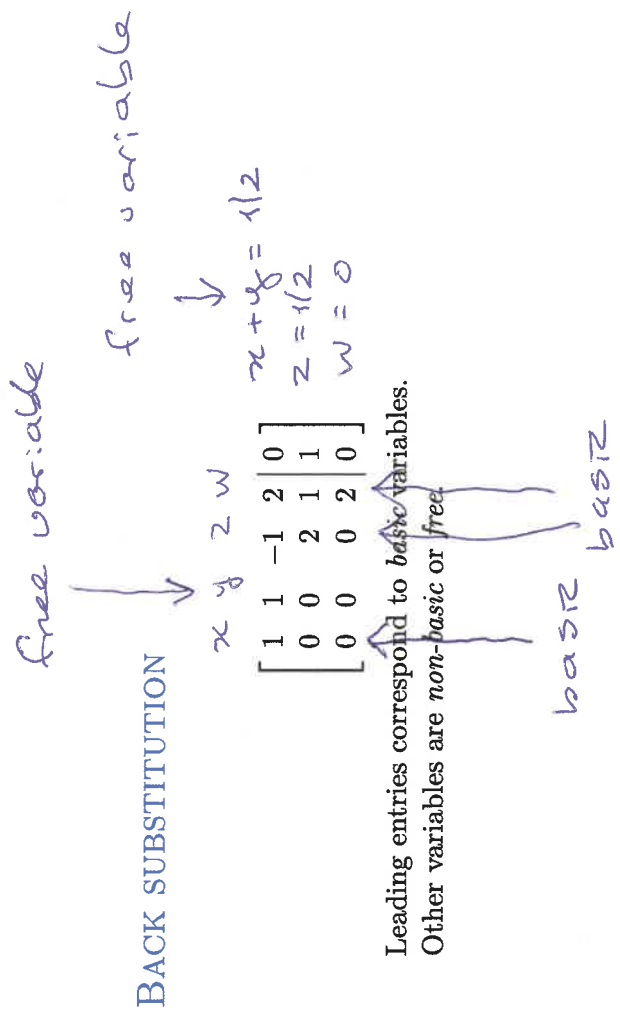 free variable
BACK SUBSTITUTION
free variable
x y z w
1 1 −1 2 0
0 0 2 1 1
0 0 0 2 0
x + y = 1/2
z = 1/2
w = 0
Leading entries correspond to basic variables.
Other variables are non-basic or free.
basic basic